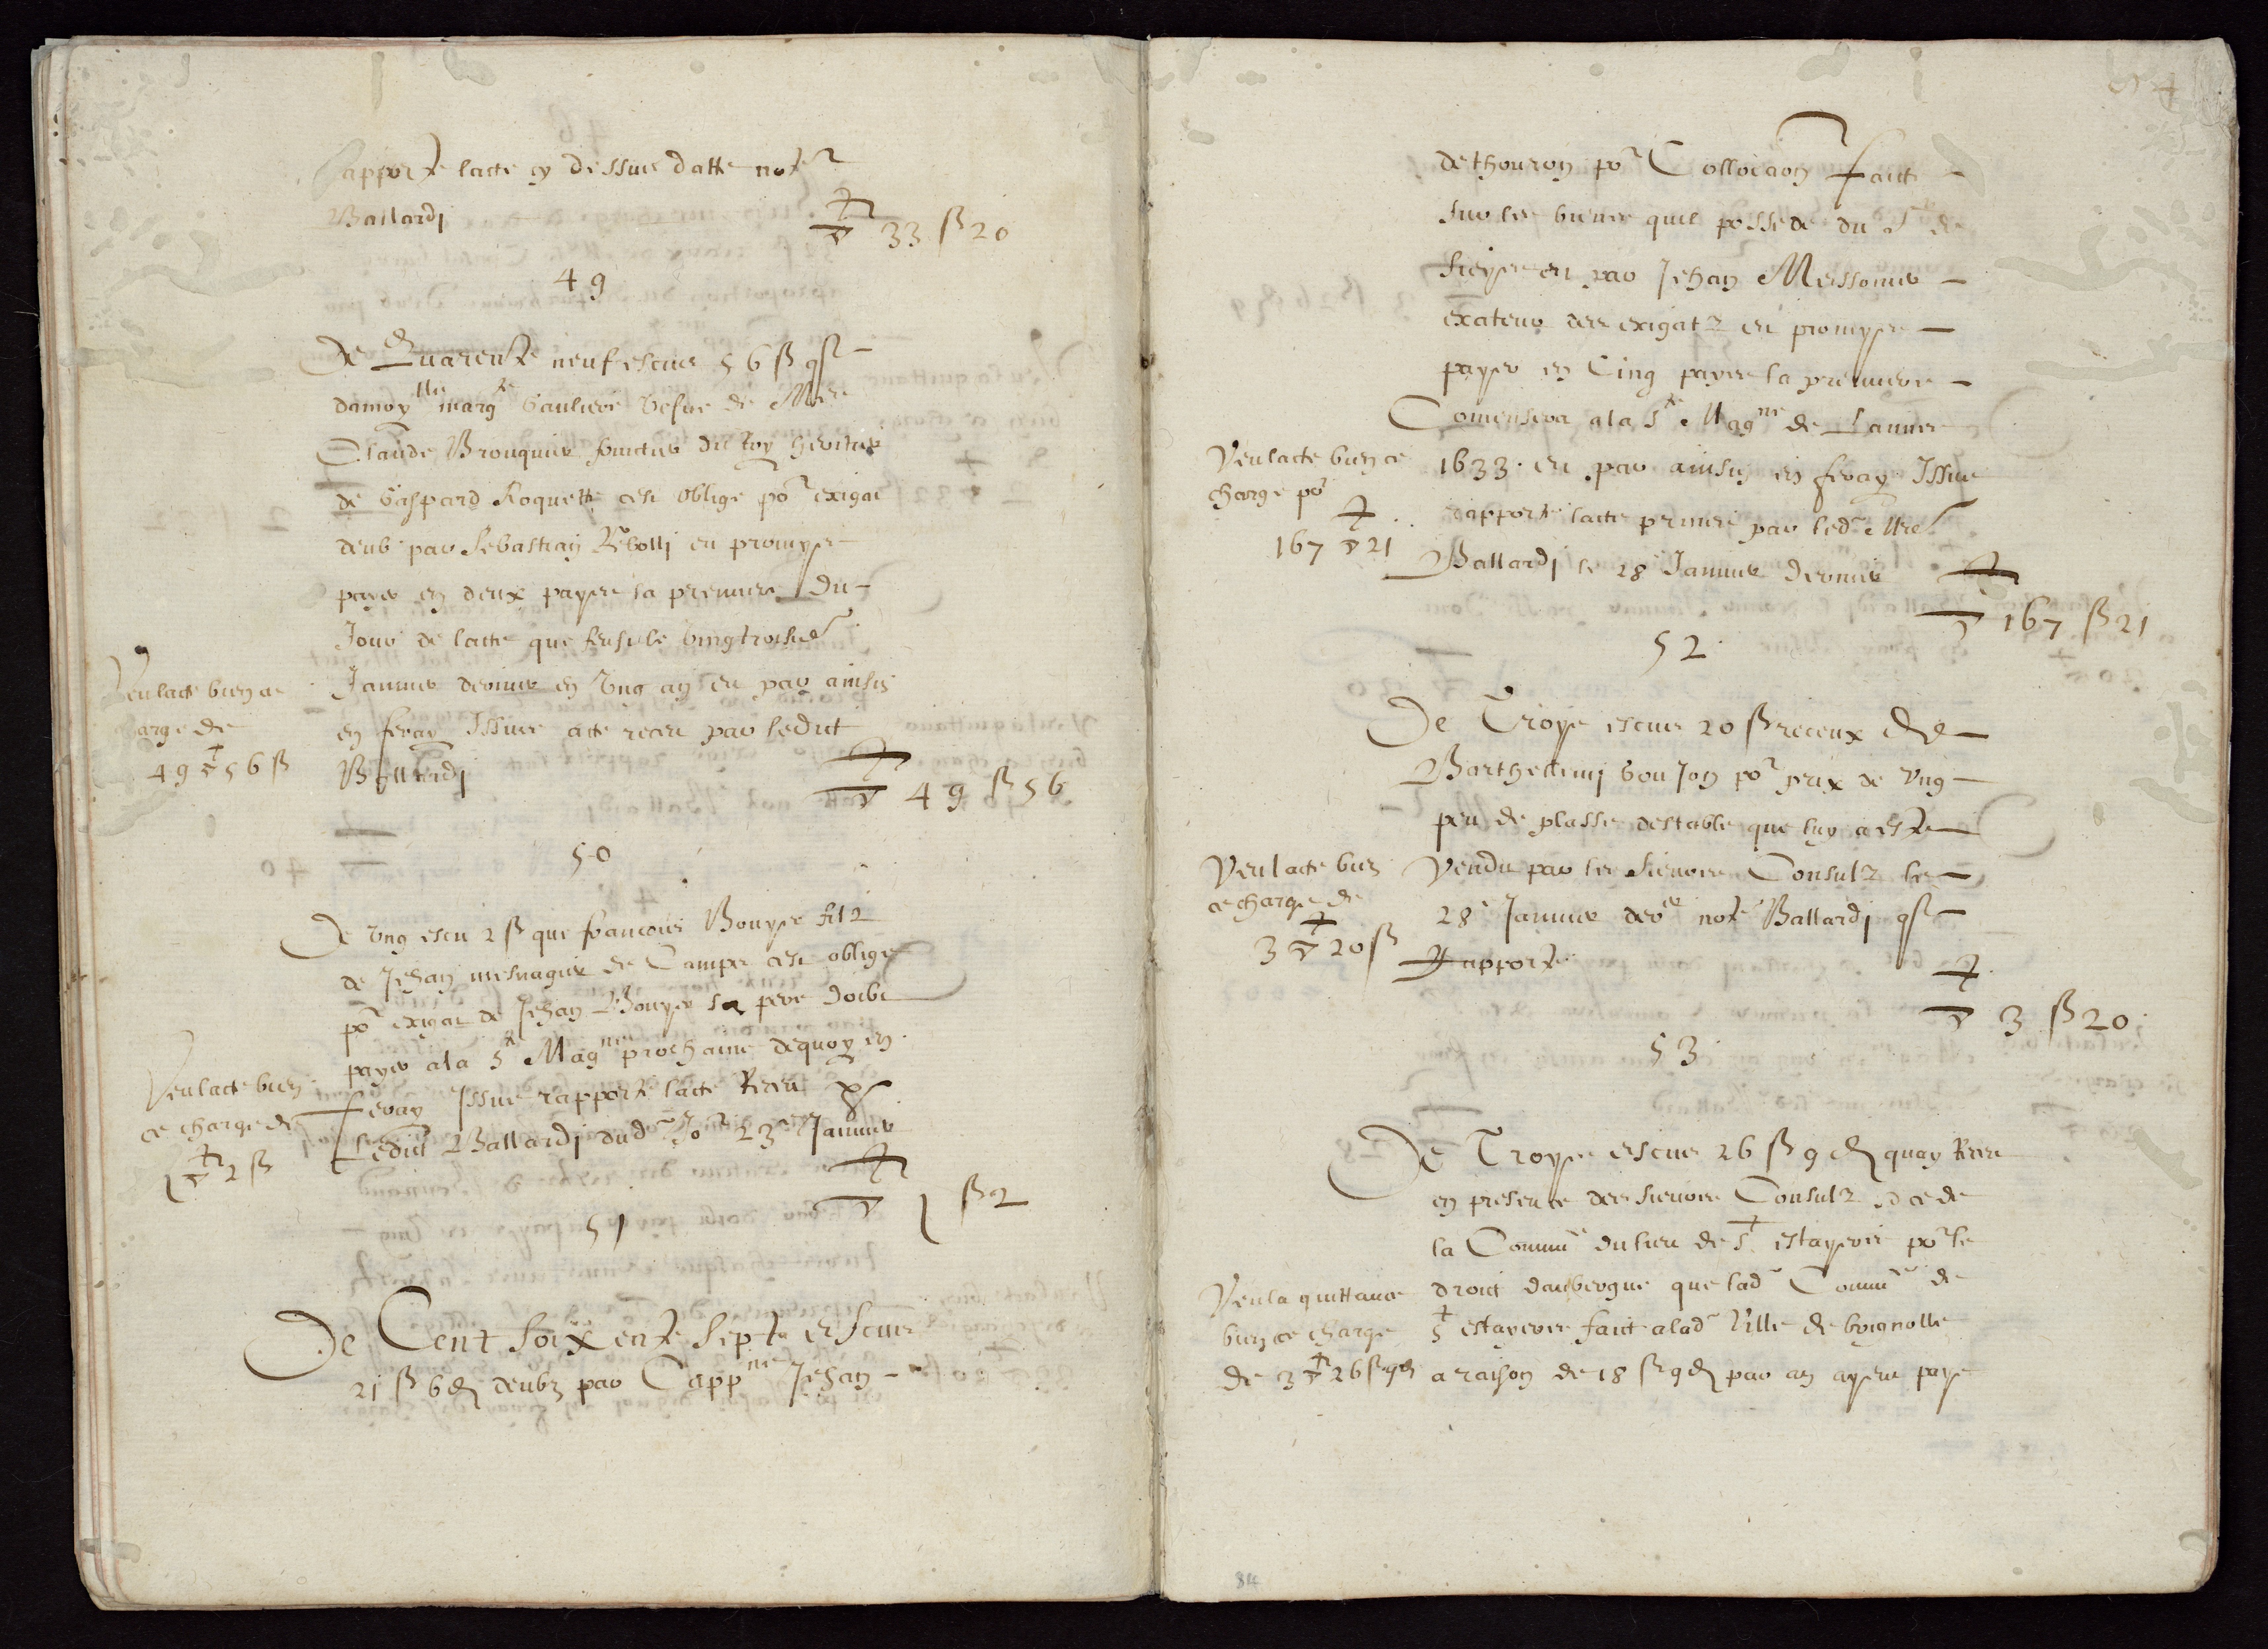 Rapporte lacte cy dessus datte note
Ballardi
33 ß 20
49
De Quarente neuf escus 56 ß que
damoy^lle marg^te Gauliere vefve de Me
Claude Brouquier heritier
de Gaspard Roquette cest oblige po^r exigat
deub par Sebastian Rebolli en promyse
payer en deux payes la premiere du
Jour de lacte que feust le vingtroisie
Janvier dernier en ung an en par ainsin
en feray Issue acte receu par ledict
Ballardi
49 ß 56
Veu lacte bien ce
charge de
49 56 ß
50
De ung escu 2 ß que francois Bouyse filz
de Jehan mesnagier de Camps cest oblige
po^r exigat de Jehan Bouyse son pere doibt
payer a la s^te Mag^ne prochaine dequoy en
feray Issue rapporte lacte Receu p
Ledict Ballardi dud Jo^r 23^e Janvier
1 ß 2
Veu lacte bien
ce charge de
1 2 ß
51
De Cent Soixente Sept escus
21 ß 6 d deubz par Capp^ne Jehan
dethouron po^r Collocaon faicte
sur les biens quil possede du S^r de
par Jehan Meissonier
exateur des exigatz en promyse
payer en Cinq payes la premiere
Comensera a la S^te Mag^ne de Lannee
1633 en par ainsin en feray Issue
rapporte lacte prinse par led Me
Ballardi le 28 Janvier dernier
167 ß 21
Veu lacte bien ce
charge po^r
167 21
52
De Troys escus 20 ß receux de
Barthellemi Goujon po^r prix de ung
peu de plasse destable que luy a este
Vendu par les Sieurs Consulz le
28^e Janvier der^er note Ballardi que
Rapporte
3 ß 20
Veu lacte bien
ce charge de
3 20 ß
53
De Troys escus 26 ß 9 d quay Receu
en presence des sieurs Consulz de
la Commu^e du lieu de S^t estayeve po^r le
droict daubergue que lad Commu^e de
S^t estayeve faict a lad Ville de brignolle
a raison de 18 ß 9 d par an ayent paye
Veu la quittance
bien ce charge
de 3 26 ß 9 d
84